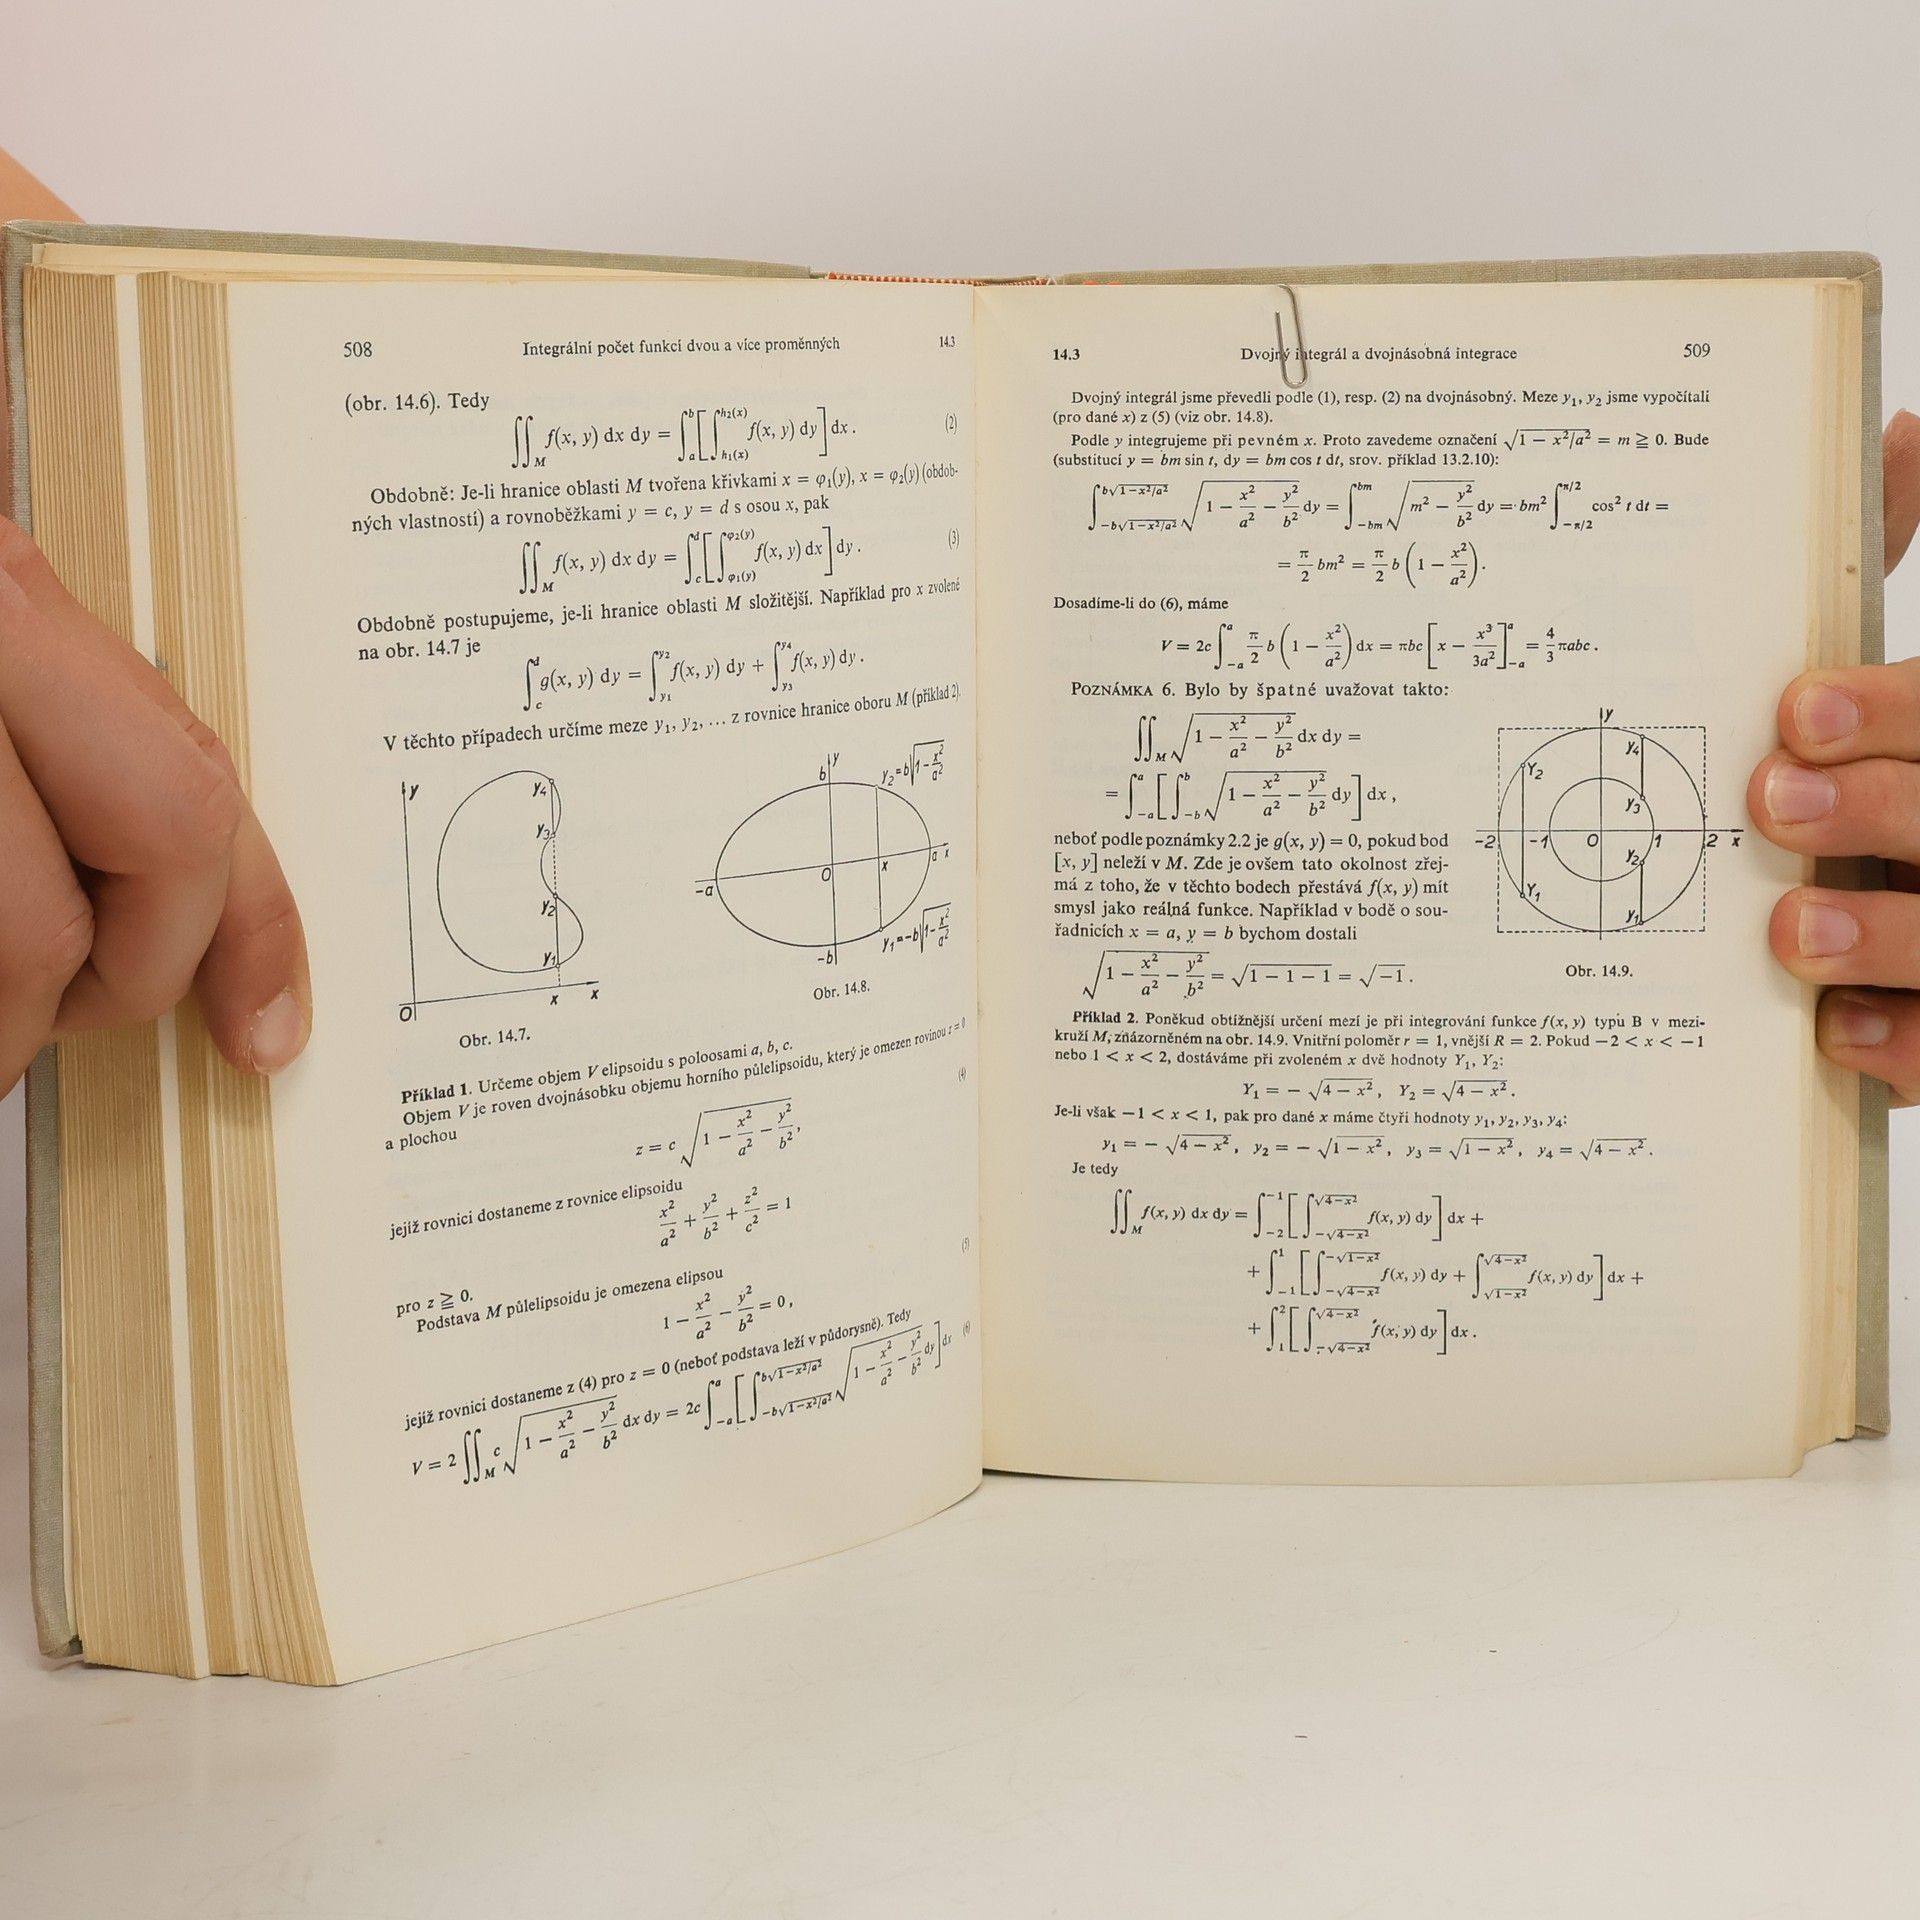 508 Integrální počet funkcí dvou a více proměnných 14.3
(obr. 14.6). Tedy
∬_M f(x, y) dx dy = ∫_a^b [ ∫_{h₁(x)}^{h₂(x)} f(x, y) dy ] dx . (2)
Obdobně: Je-li hranice oblasti M tvořena křivkami x = φ₁(y), x = φ₂(y) (obdob-
ných vlastností) a rovnoběžkami y = c, y = d s osou x, pak
∬_M f(x, y) dx dy = ∫_c^d [ ∫_{φ₁(y)}^{φ₂(y)} f(x, y) dx ] dy . (3)
Obdobně postupujeme, je-li hranice oblasti M složitější. Například pro x zvolené
na obr. 14.7 je
∫_c^d g(x, y) dy = ∫_{y₁}^{y₂} f(x, y) dy + ∫_{y₃}^{y₄} f(x, y) dy .
V těchto případech určíme meze y₁, y₂, … z rovnice hranice oboru M (příklad 2).
y y₄ y₃ y₂ y₁ O x x
Obr. 14.7.
b y y₂=b√(1−x²/a²) −a O x a x −b y₁=−b√(1−x²/a²)
Obr. 14.8.
Příklad 1. Určeme objem V elipsoidu s poloosami a, b, c.
Objem V je roven dvojnásobku objemu horního půlelipsoidu, který je omezen rovinou z = 0
a plochou (4)
z = c √(1 − x²/a² − y²/b²),
jejíž rovnici dostaneme z rovnice elipsoidu
x²/a² + y²/b² + z²/c² = 1
pro z ≧ 0. (5)
Podstava M půlelipsoidu je omezena elipsou
1 − x²/a² − y²/b² = 0,
jejíž rovnici dostaneme z (4) pro z = 0 (neboť podstava leží v půdorysně). Tedy
V = 2 ∬_M c √(1 − x²/a² − y²/b²) dx dy = 2c ∫_{−a}^a [ ∫_{−b√(1−x²/a²)}^{b√(1−x²/a²)} √(1 − x²/a² − y²/b²) dy ] dx (6)
14.3 Dvojný integrál a dvojnásobná integrace 509
Dvojný integrál jsme převedli podle (1), resp. (2) na dvojnásobný. Meze y₁, y₂ jsme vypočítali
(pro dané x) z (5) (viz obr. 14.8).
Podle y integrujeme při pevném x. Proto zavedeme označení √(1 − x²/a²) = m ≧ 0. Bude
(substitucí y = bm sin t, dy = bm cos t dt, srov. příklad 13.2.10):
∫_{−b√(1−x²/a²)}^{b√(1−x²/a²)} √(1 − x²/a² − y²/b²) dy = ∫_{−bm}^{bm} √(m² − y²/b²) dy = bm² ∫_{−π/2}^{π/2} cos² t dt =
= π/2 bm² = π/2 b (1 − x²/a²).
Dosadíme-li do (6), máme
V = 2c ∫_{−a}^a π/2 b (1 − x²/a²) dx = πbc [x − x³/3a²]_{−a}^a = 4/3 πabc .
POZNÁMKA 6. Bylo by špatné uvažovat takto:
∬_M √(1 − x²/a² − y²/b²) dx dy =
= ∫_{−a}^a [ ∫_{−b}^b √(1 − x²/a² − y²/b²) dy ] dx ,
neboť podle poznámky 2.2 je g(x, y) = 0, pokud bod
[x, y] neleží v M. Zde je ovšem tato okolnost zřej-
má z toho, že v těchto bodech přestává f(x, y) mít
smysl jako reálná funkce. Například v bodě o sou-
řadnicích x = a, y = b bychom dostali
√(1 − x²/a² − y²/b²) = √(1 − 1 − 1) = √−1 .
y y₄ Y₂ y₃ −2 −1 O 1 2 x y₂ Y₁ y₁
Obr. 14.9.
Příklad 2. Poněkud obtížnější určení mezí je při integrování funkce f(x, y) typu B v mezi-
kruží M, znázorněném na obr. 14.9. Vnitřní poloměr r = 1, vnější R = 2. Pokud −2 < x < −1
nebo 1 < x < 2, dostáváme při zvoleném x dvě hodnoty Y₁, Y₂:
Y₁ = − √(4 − x²), Y₂ = √(4 − x²).
Je-li však −1 < x < 1, pak pro dané x máme čtyři hodnoty y₁, y₂, y₃, y₄:
y₁ = − √(4 − x²), y₂ = − √(1 − x²), y₃ = √(1 − x²), y₄ = √(4 − x²).
Je tedy
∬_M f(x, y) dx dy = ∫_{−2}^{−1} [ ∫_{−√(4−x²)}^{√(4−x²)} f(x, y) dy ] dx +
+ ∫_{−1}^1 [ ∫_{−√(4−x²)}^{−√(1−x²)} f(x, y) dy + ∫_{√(1−x²)}^{√(4−x²)} f(x, y) dy ] dx +
+ ∫_1^2 [ ∫_{−√(4−x²)}^{√(4−x²)} f(x, y) dy ] dx .